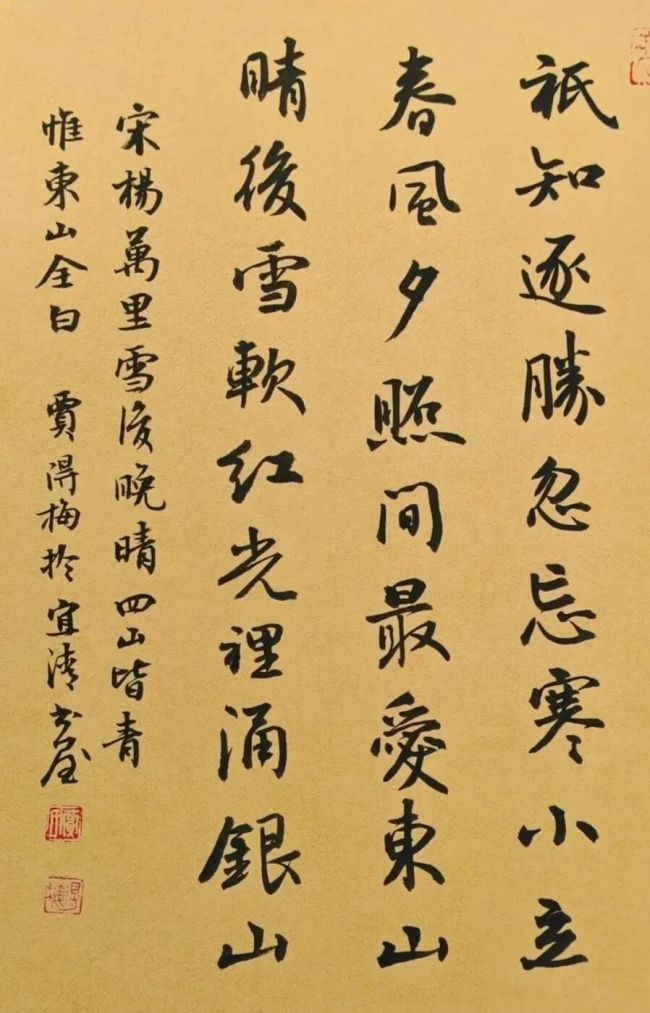 祇知逐勝忽忘寒小立
春風夕照間最愛東山
晴後雪軟紅光裡涌銀山
宋楊萬里雪後晚晴四山皆青
惟東山全白 賈得梅於宜清書屋